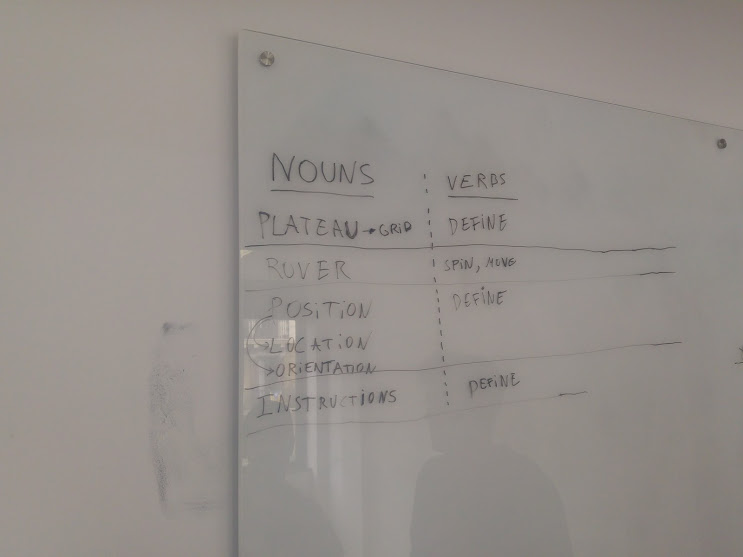 NOUNS VERBS
PLATEAU → GRID DEFINE
RUVER SPIN, MOVE
POSITION DEFINE
LOCATION
ORIENTATION
INSTRUCTIONS DEFINE